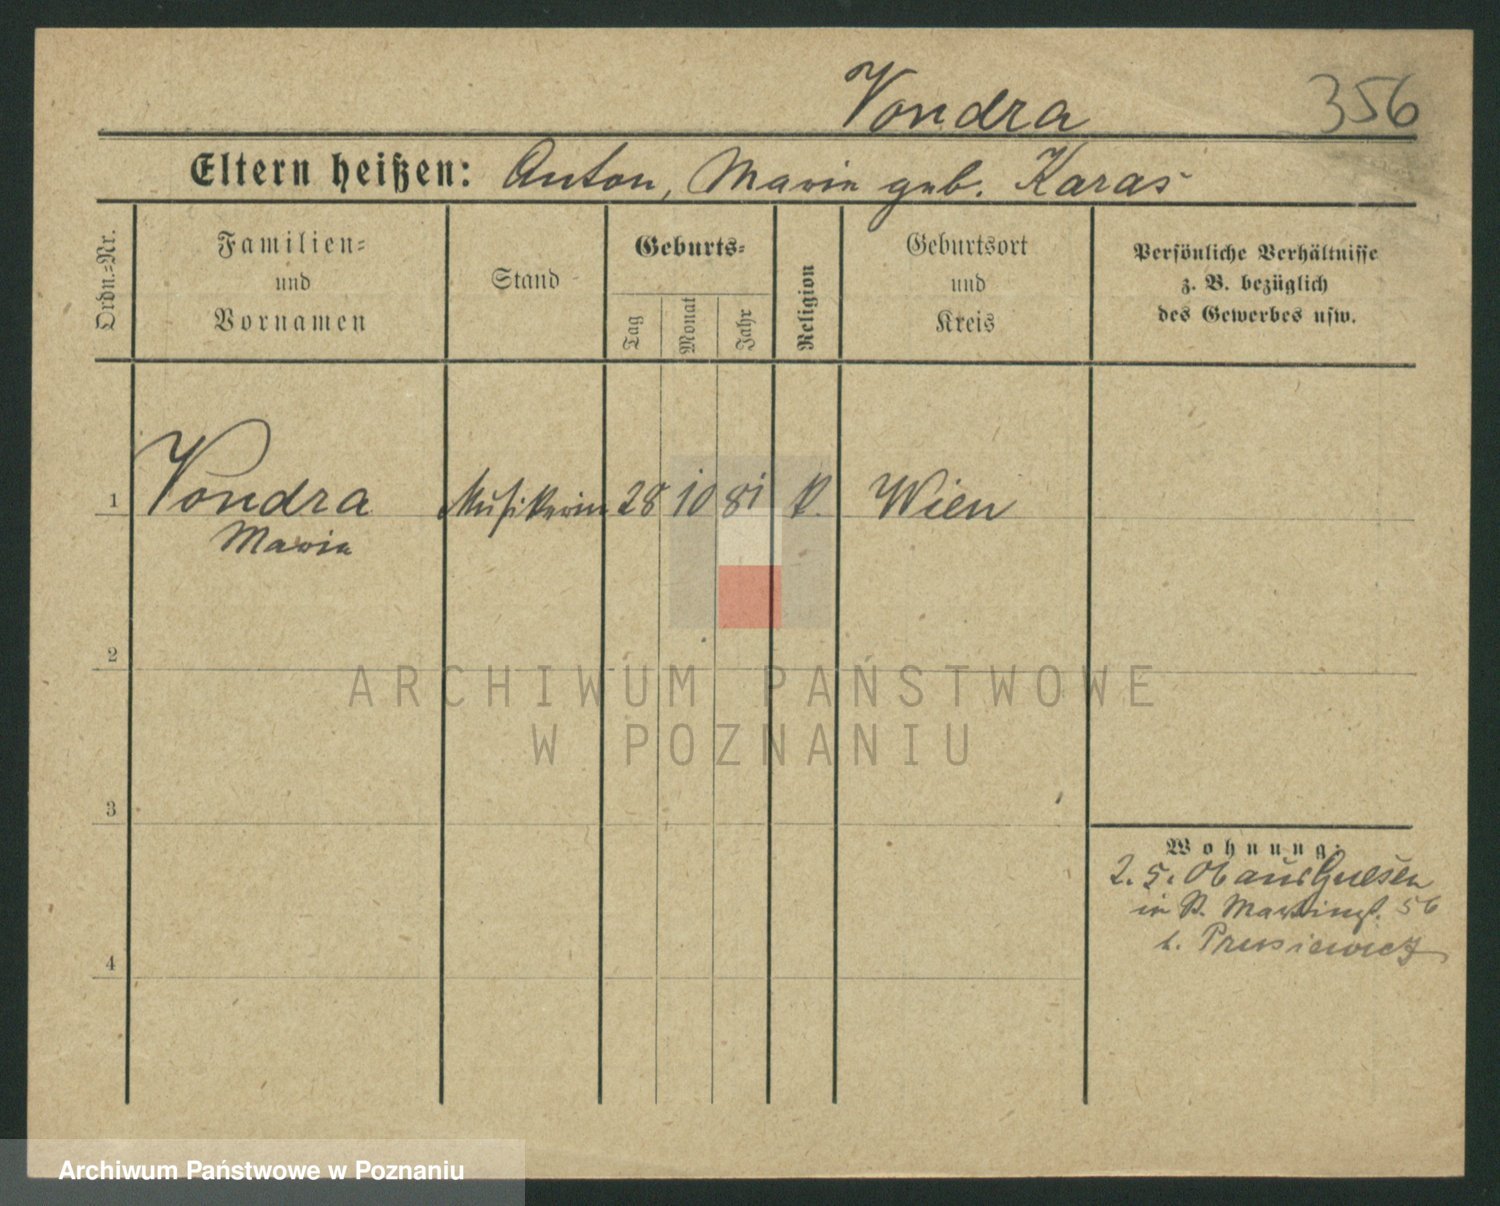 Vondra
356
Eltern heißen: Anton, Marie geb. Karas
Ordn.-Nr.
Familien-
und
Vornamen
Stand
Geburts-
Tag
Monat
Jahr
Religion
Geburtsort
und
Kreis
Persönliche Verhältnisse
z. B. bezüglich
des Gewerbes usw.
1 Vondra Musikerin 28 10 81 k. Wien
Marie
2
ARCHIWUM PAŃSTWOWE
W POZNANIU
3
Wohnung:
2. 5. 06 aus Gnesen
in St. Martinst. 56
b. Prusiewicz
4
Archiwum Państwowe w Poznaniu